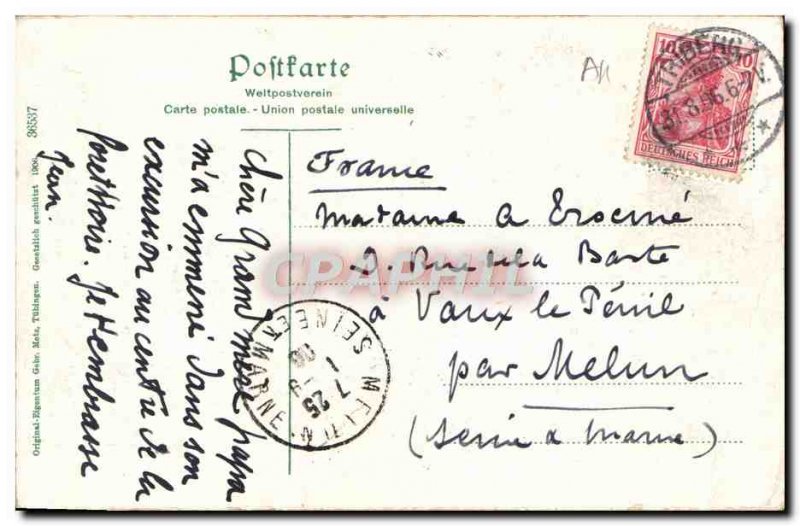 Postkarte
Weltpostverein
Carte postale. - Union postale universelle
36537
Original-Eigentum Gebr. Metz, Tübingen. Gesetzlich geschützt 1906.
chère Grand'mère papa
m'a emmené dans son
excursion au centre de la
foret noire. Je t'embrasse
Jean.
10 10
DEUTSCHES REICH
TRIBERG
31.8.06.6-7 V.
All
France
Madame A
2. Rue de la Barte
à Vaux le Pénil
par Melun
(Seine & Marne)
CPAPHIL
MELUN
7 25
1 - 9
06
SEINE ET MARNE